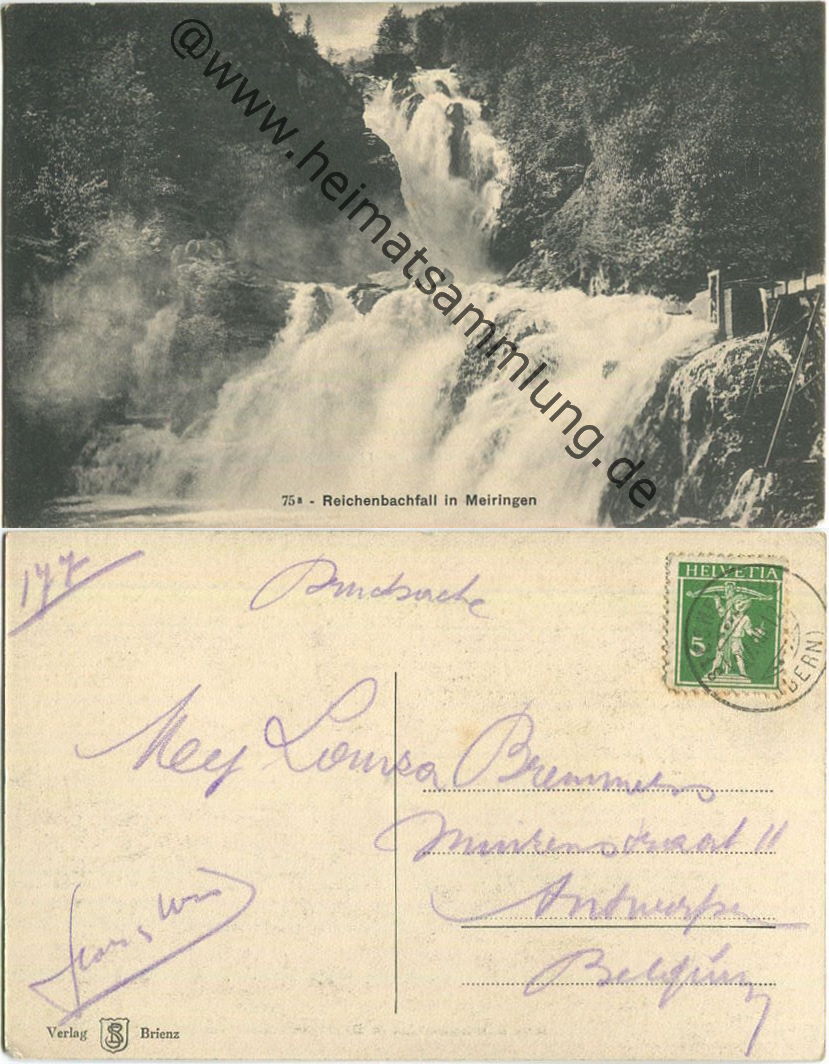 @www.heimatsammlung.de
75a - Reichenbachfall in Meiringen
177
Drucksache
HELVETIA
5
(BERN)
Mej Louisa Bremmers
straat 11
Antwerpen
Belgium
Verlag SB Brienz